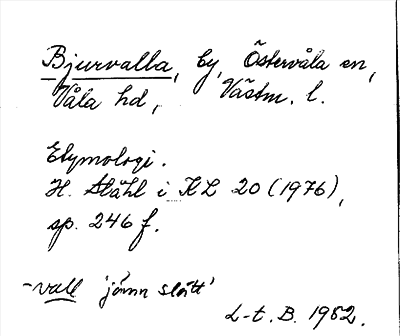 Bjurvalla, by, Östervåla sn,
Våla hd, Västm. l.
Etymologi.
H. Ståhl i KL 20 (1976),
sp. 246 f.
-vall 'jämn slätt'
L-t. B. 1982.